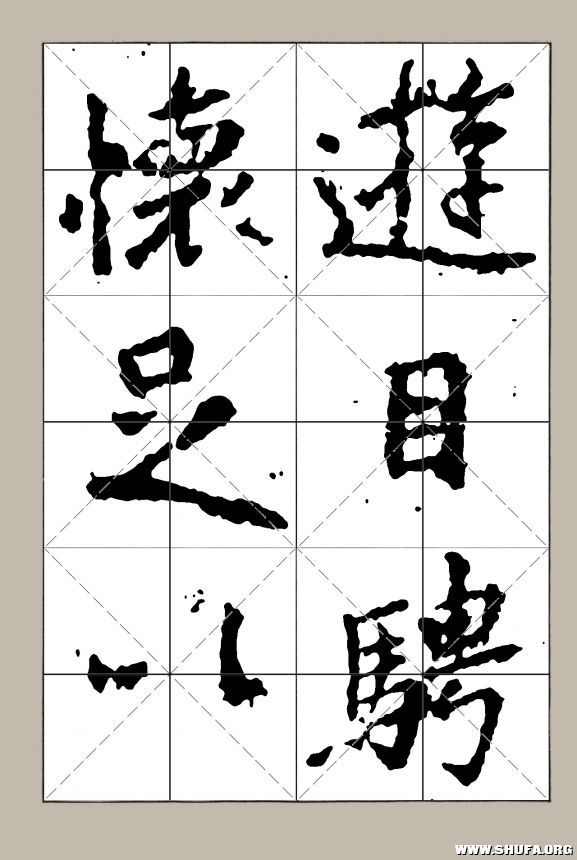 遊目騁
懷足以
WWW.SHUFA.ORG